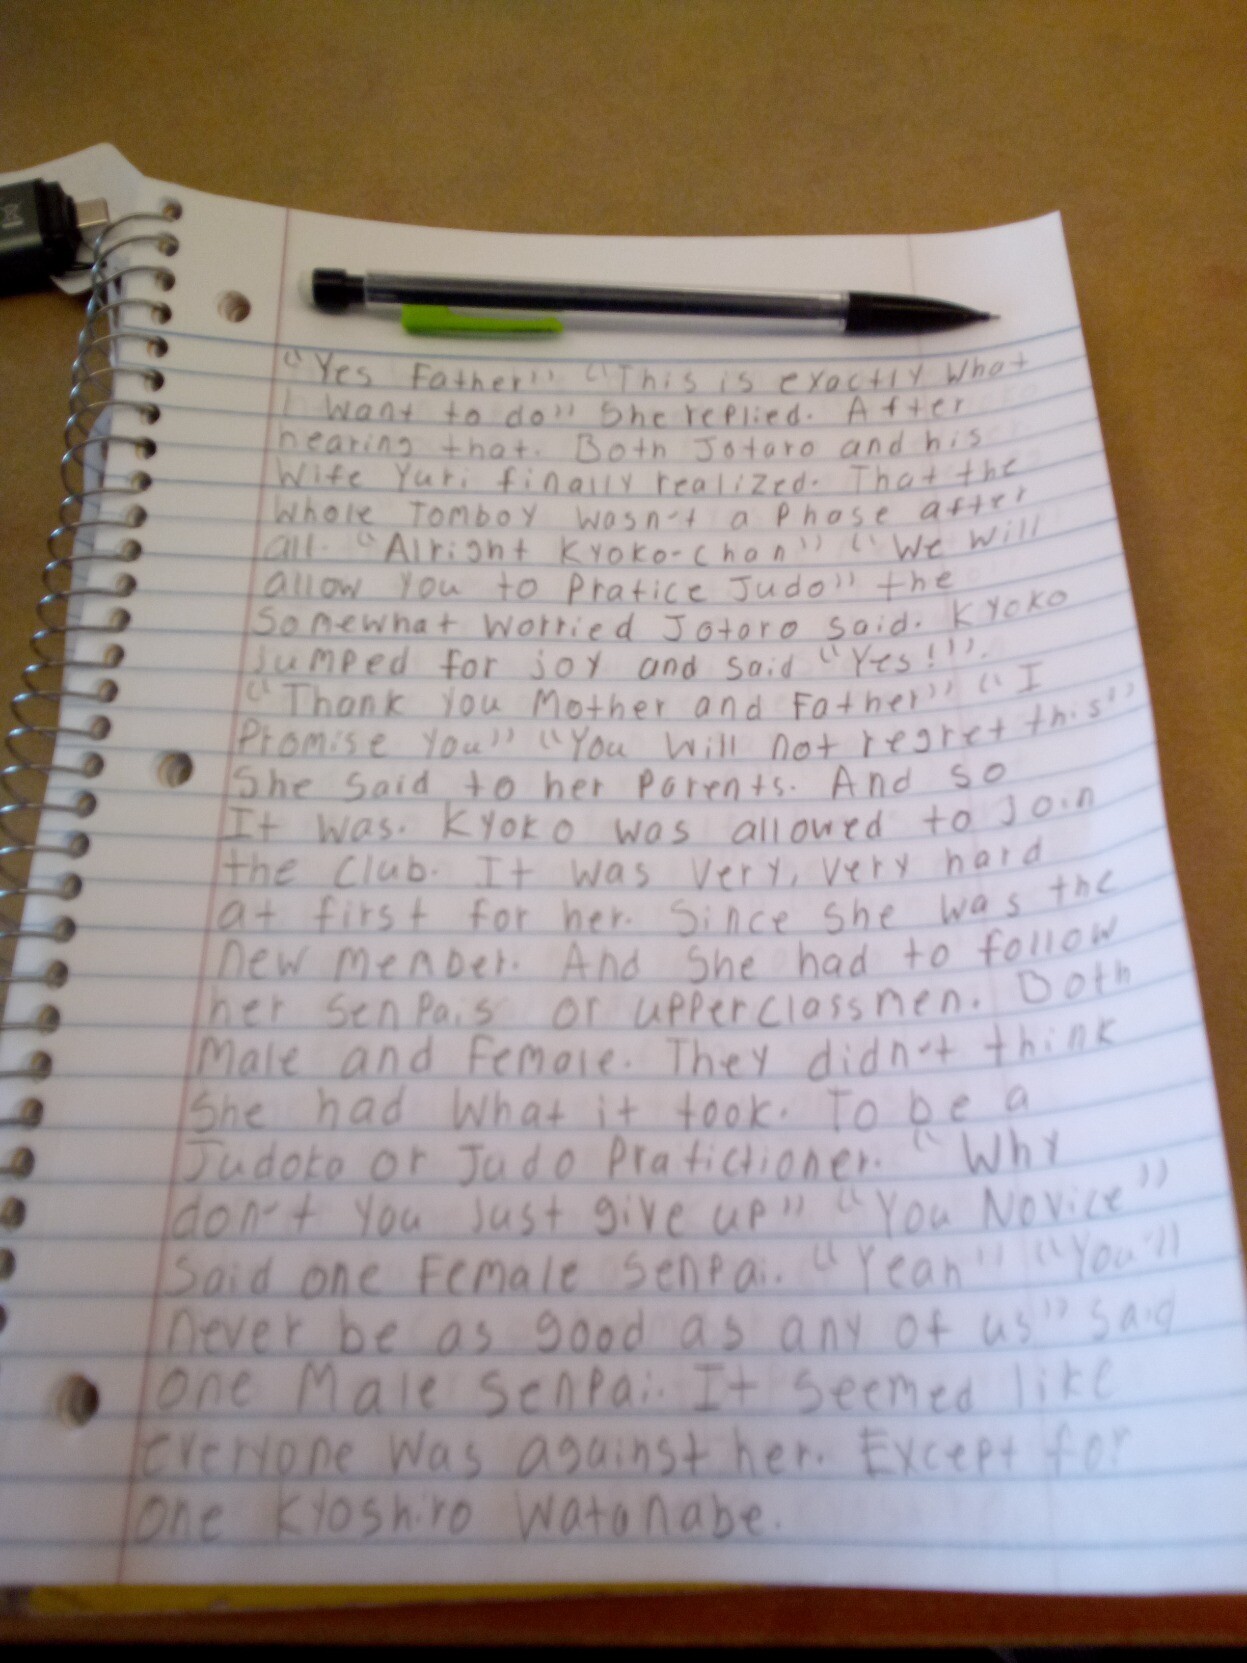 "Yes Father" "This is exactly what
I want to do" She replied. After
hearing that. Both Jotaro and his
Wife Yuri finally realized. That the
whole Tomboy wasn't a Phase after
all. "Alright Kyoko-chan" "We will
allow you to Pratice Judo" the
somewhat worried Jotaro said. Kyoko
jumped for joy and said "Yes!".
"Thank you Mother and Father" "I
Promise you" "You will not regret this"
She said to her Parents. And so
It was. Kyoko was allowed to join
the Club. It was very, very hard
at first for her. Since she was the
new member. And she had to follow
her senpais or upperclassmen. Both
Male and Female. They didn't think
she had what it took. To be a
Judoka or Judo Pratictioner. "Why
don't you just give up" "You Novice"
said one Female senpai. "Yeah" "You'll
never be as good as any of us" said
one Male senpai. It seemed like
everyone was against her. Except for
one Kyoshiro Watanabe.